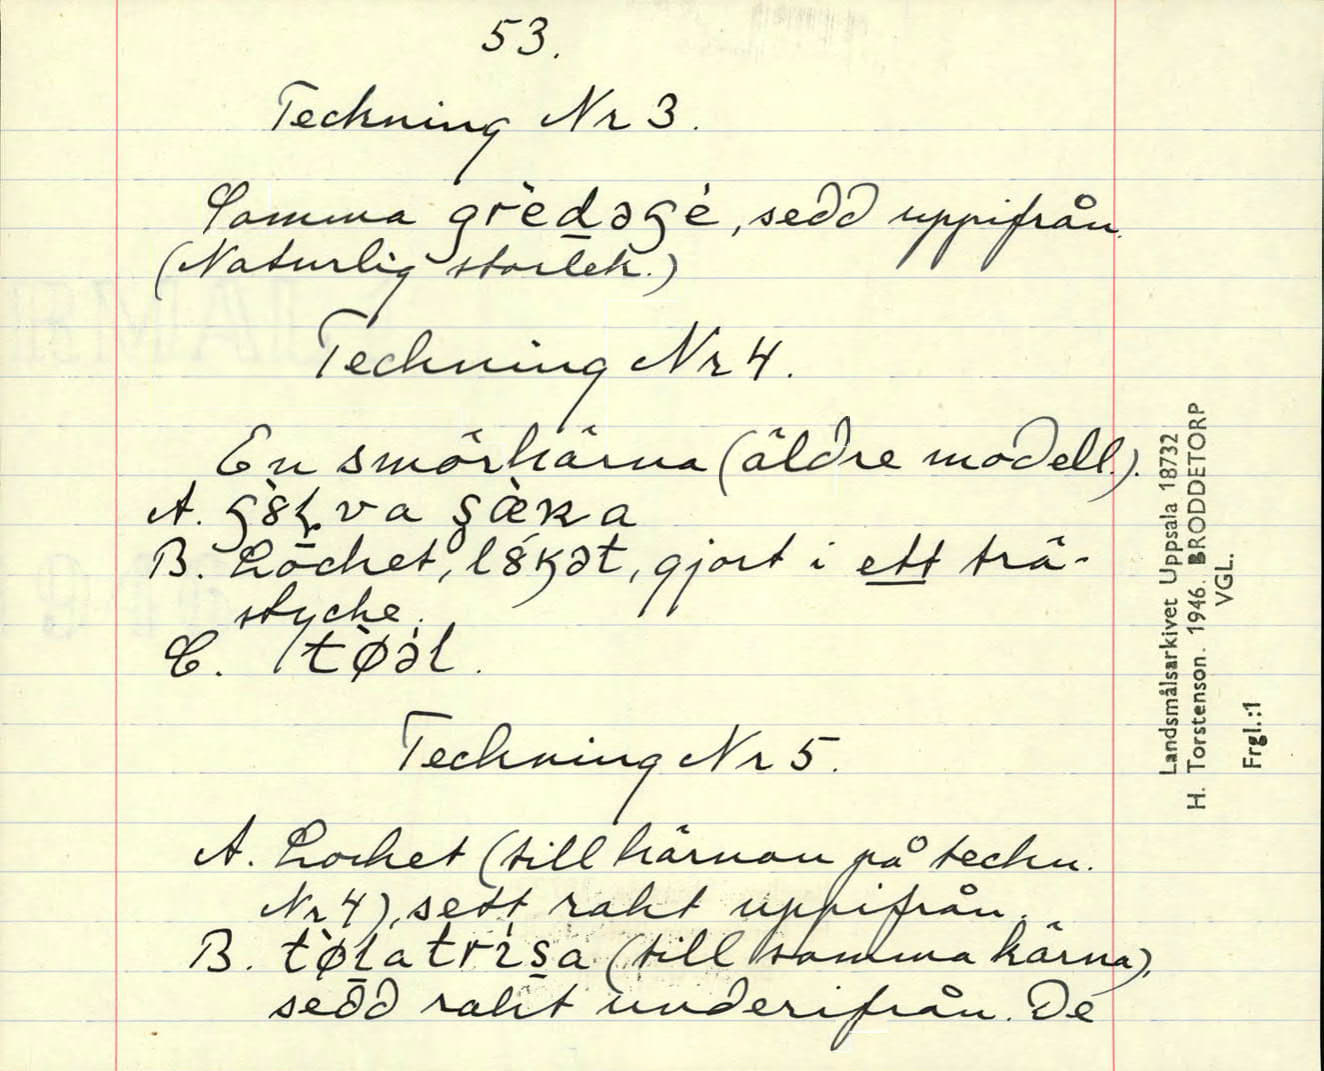 53.
Teckning Nr 3.
Samma grèd̲əgé, sedd uppifrån.
(Naturlig storlek.)
Teckning Nr 4.
En smörkärna (äldre modell.).
A.
B. Locket, gjort i ett trä-
stycke.
C. tø̀əl.
Teckning Nr 5.
A. Locket (till kärnan på teckn.
Nr 4), sett rakt uppifrån.
B. (till samma kärna),
sedd rakt underifrån. De
Landsmålsarkivet Uppsala 18732
H. Torstenson. 1946. BRODDETORP
VGL.
Frgl.:1